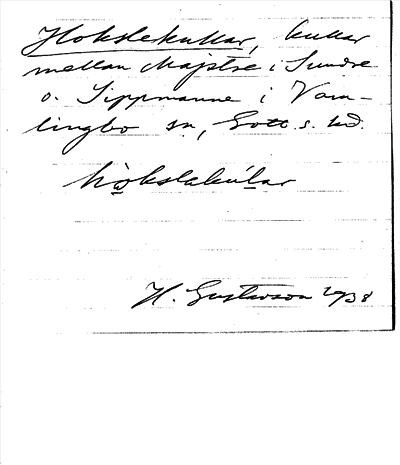 Hokslekullar, kullar
mellan Majstre i Sundre
o. Sippmanne i Vam-
lingbo sn, Gotl. s. hd.
hokslakúlar
H. Gustavson 1938